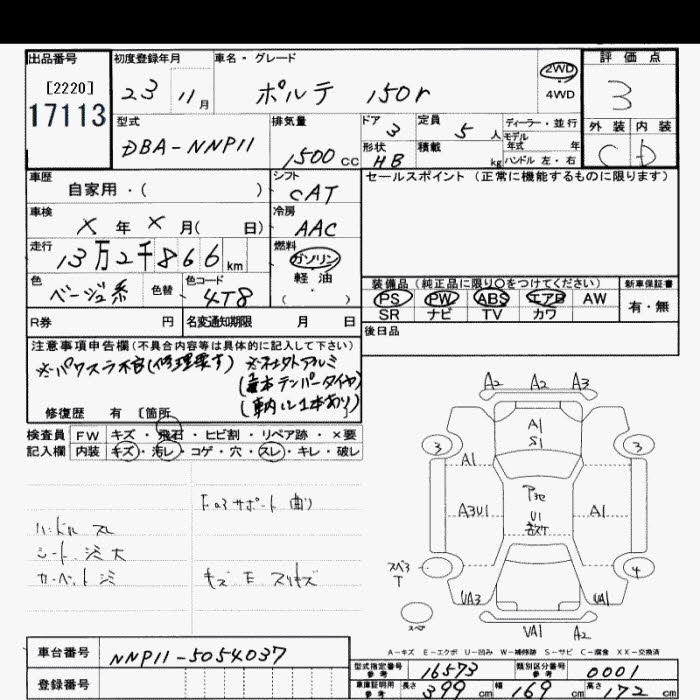 出品番号 初度登録年月 車名・グレード 評価点
[2220]
17113
23 11月 ポルテ 150r 2WD 4WD 3
型式 排気量 ドア 3 定員 5人 ディーラー・並行 外装 内装
モデル年式 年
DBA-NNP11 1500cc 形状 HB 積載 kg ハンドル 左・右 C D
車歴 シフト セールスポイント (正常に機能するものに限ります)
自家用・( ) CAT
車検 冷房
X年X月( 日) AAC
走行 燃料
13万2千866km ガソリン
色 色替 色コード 軽油
ベージュ系 4T8 ( ・ )
装備品 (純正品に限り○をつけてください) 新車保証書
PS PW ABS エアB AW 有・無
SR ナビ TV カワ
R券 円 名変通知期限 月 日 後日品
注意事項申告欄(不具合内容等は具体的に記入して下さい)
※パワスラ不良(修理要す) ※ネクストアルミ
本テンパータイヤ
(車内に1本あり)
修復歴 有 〔箇所
検査員 FW キズ・飛石・ヒビ割・リペア跡・×要
記入欄 内装 キズ・汚レ・コゲ・穴・スレ・キレ・破レ
サポート 曲り
ハンドル スレ
シート シミ大
カーペット シミ
キズ E スリキズ
A2 A2 A3
A1
S1
3 3
A1
A3U1 U1 A1
スペア
T
4
UA3 UA1
スペア
VA1 A2
A-キズ E-エクボ U-凹み W-補修跡 S-サビ C-腐食 XX-交換済
車台番号 NNP11-5054037
登録番号
型式指定番号 参考 16573 類別区分番号 参考 0001
車庫証明用 参考 長さ 399cm 幅 169cm 高さ 172cm